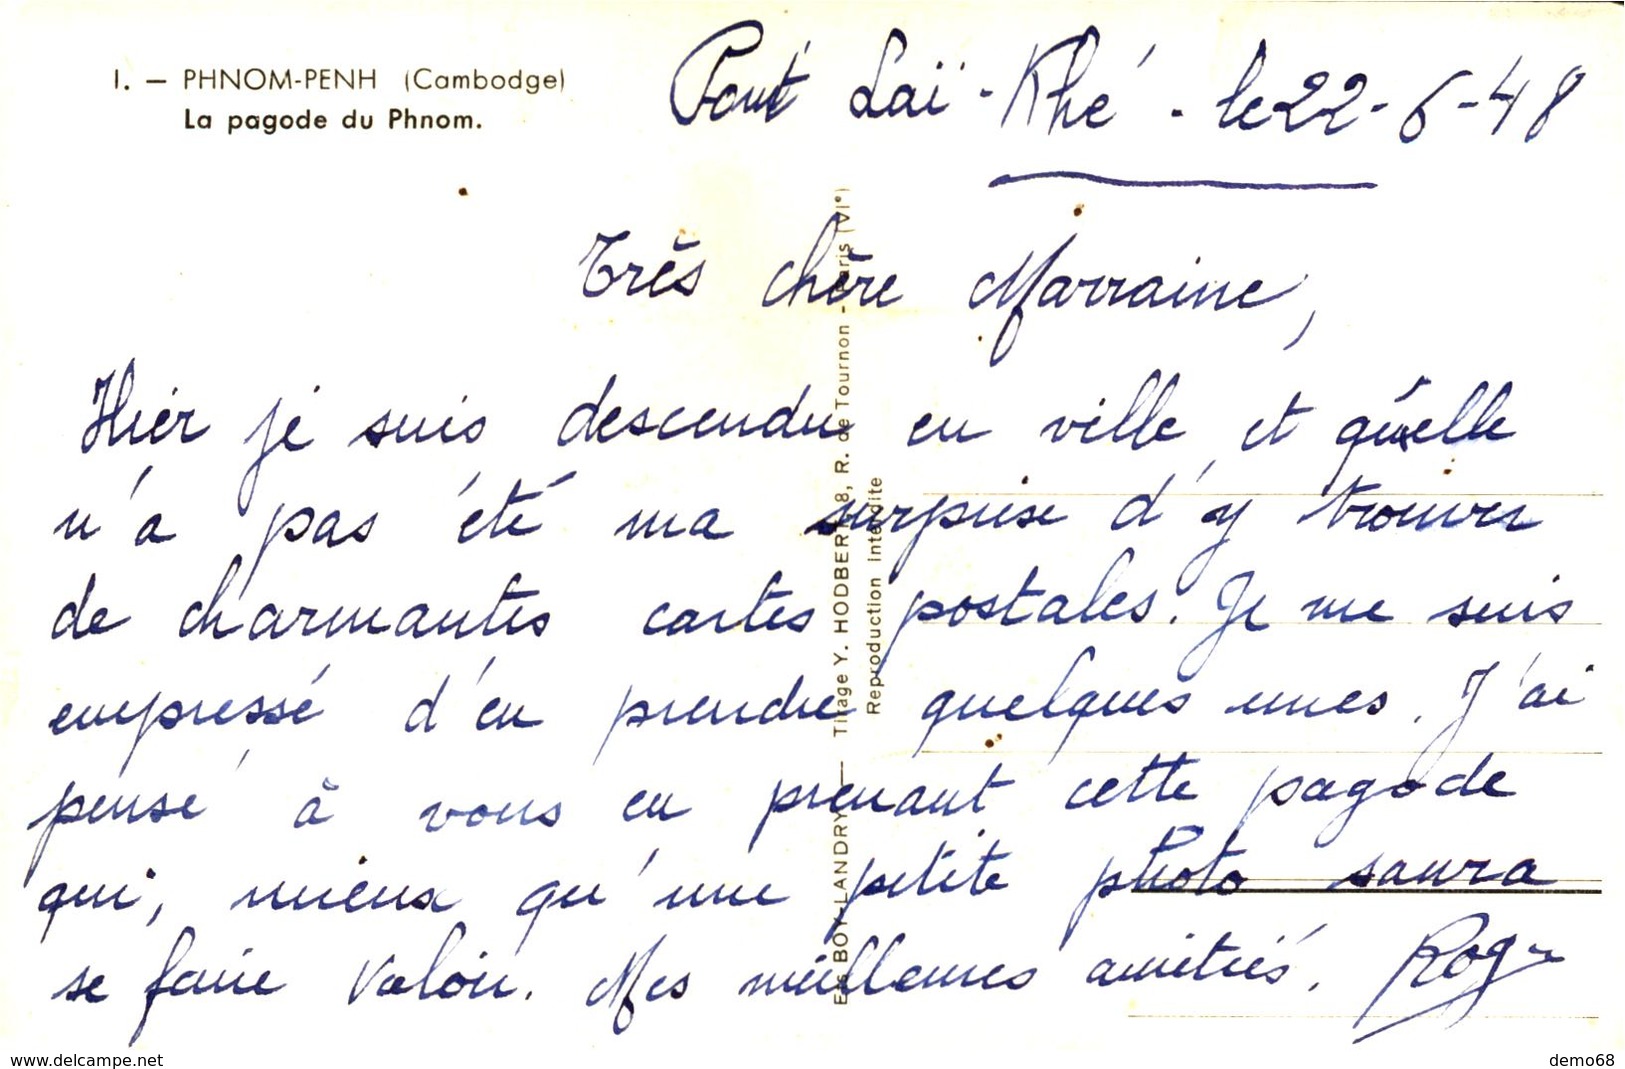 1. — PHNOM-PENH (Cambodge)
La pagode du Phnom.
Pont Laï-Khé. le 22-6-48
Très chère Marraine,
Hier je suis descendu en ville et quelle
n'a pas été ma surprise d'y trouver
de charmantes cartes postales. Je me suis
empressé d'en prendre quelques unes. J'ai
pensé à vous en prenant cette pagode
qui, mieux qu'une petite photo saura
se faire valoir. Mes meilleures amitiés. Roger
Ets BOY-LANDRY — Tirage Y. HODBERT, 8, R. de Tournon - Paris (VIe)
Reproduction interdite
www.delcampe.net
demo68